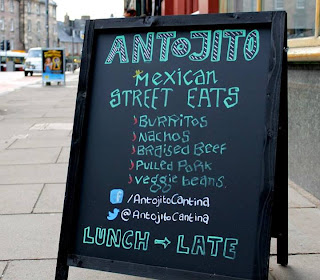 ANTOJITO
Mexican
STREET EATS
BURRITOS
NACHOS
Braised Beef
Pulled Pork
Veggie beans.
/AntojitoCantina
@AntojitoCantina
LUNCH → LATE